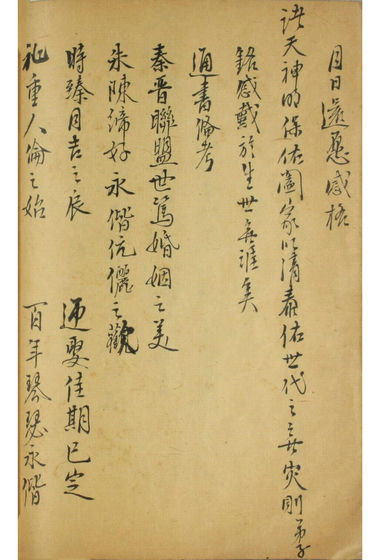 月日還愿感格
諸天神明保佑闔家以清泰佑世代之無災則弟子
銘感戴於生世無涯矣
通書俻考
秦晉聯盟世篤婚姻之美
朱陳締好永偕伉儷之歡
時臻月吉之辰 迎娶佳期已定
礼重人倫之始 百年琴瑟永偕